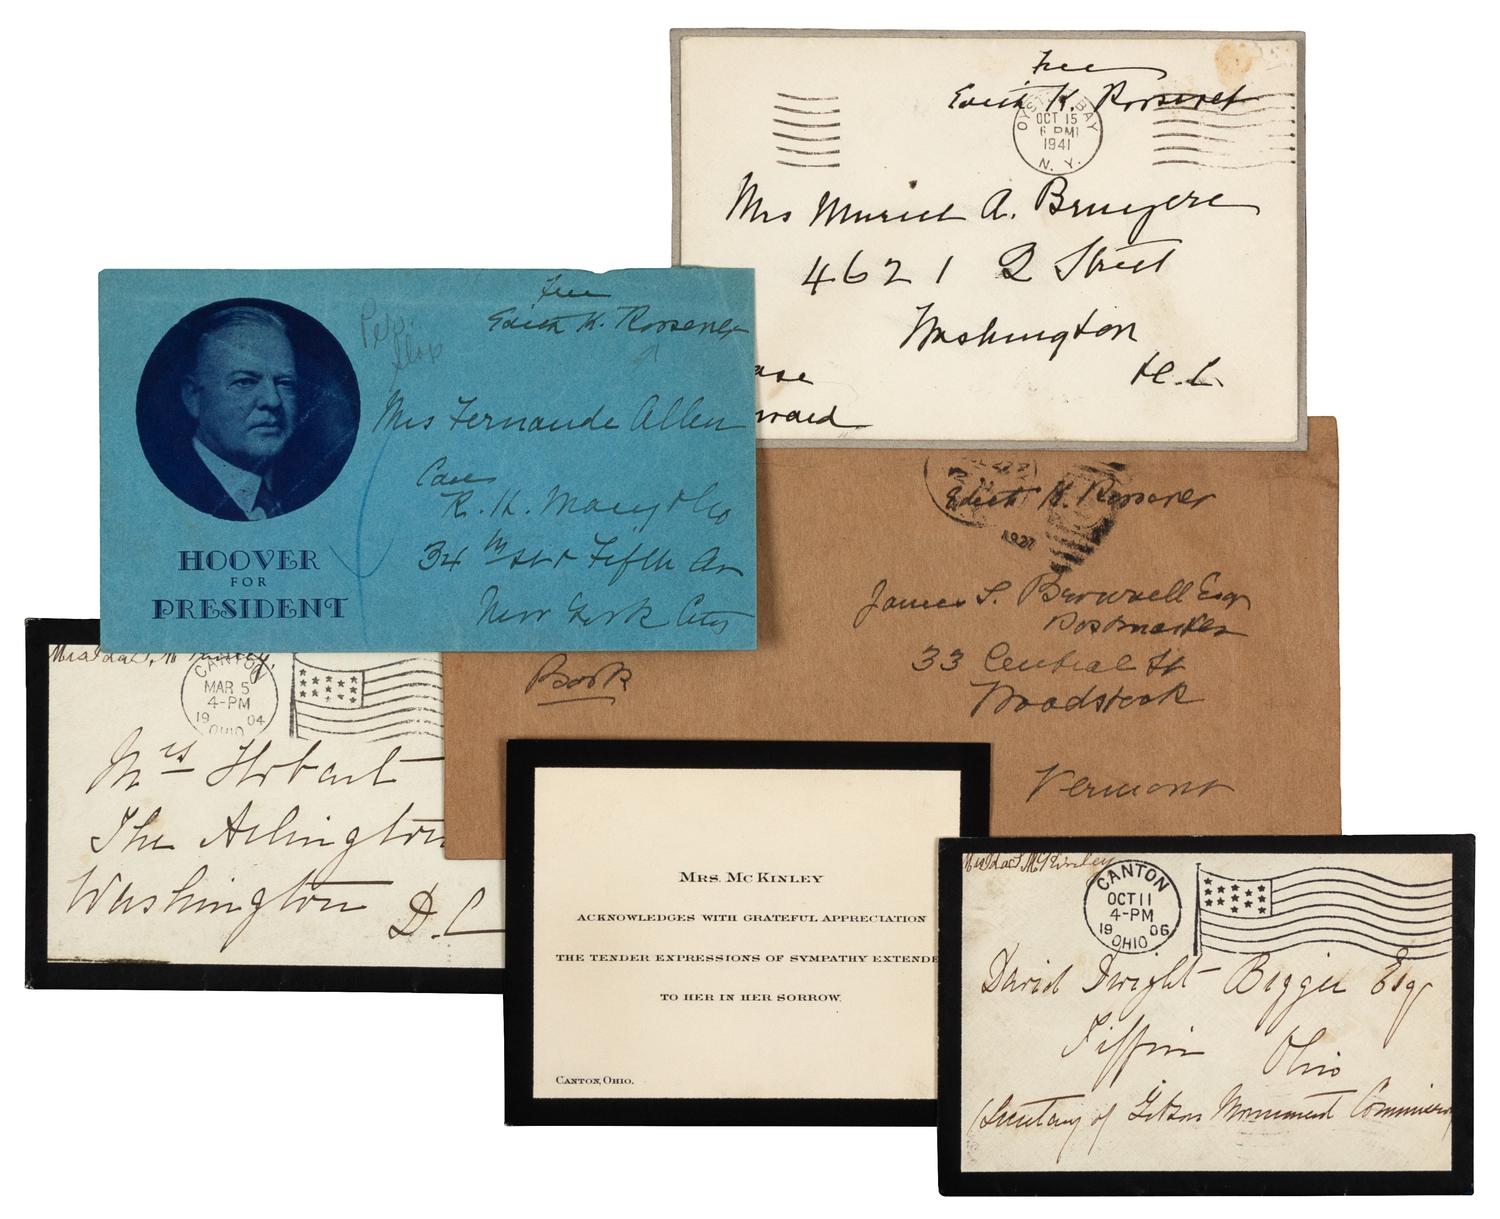 Free
Edith K. Roosevelt
OYSTER BAY
OCT 15
6 PM
1941
N. Y.
Mrs Muriel A. Bruyere
4621 Q Street
Washington
D.C.
Free
Edith K. Roosevelt
Mrs Fernande Allen
Care
R. H. Macy & Co
34 Fifth Av
New York City
HOOVER
FOR
PRESIDENT
Edith K. Roosevelt
1927
James S. Brownell Esq
Postmaster
33 Central St
Woodstock
Vermont
Book
Mrs Ida S. McKinley.
CANTON
MAR 5
4-PM
19 04
OHIO
Mrs Hobart
The Arlington
Washington D.C
MRS. MCKINLEY
ACKNOWLEDGES WITH GRATEFUL APPRECIATION
THE TENDER EXPRESSIONS OF SYMPATHY EXTENDE
TO HER IN HER SORROW.
CANTON, OHIO.
Mrs Ida S. McKinley
CANTON
OCT 11
4-PM
19 06
OHIO
David Dwight Bigger Esq
Tiffin Ohio
(Secretary of Monument